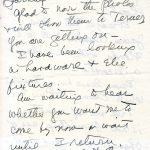 Glad to now the
them to Terrace
you are getting on –
I have been looking
at hardware & Elec
fixtures.
Am waiting to hear
whether you want me to
come by now or wait
until I return.